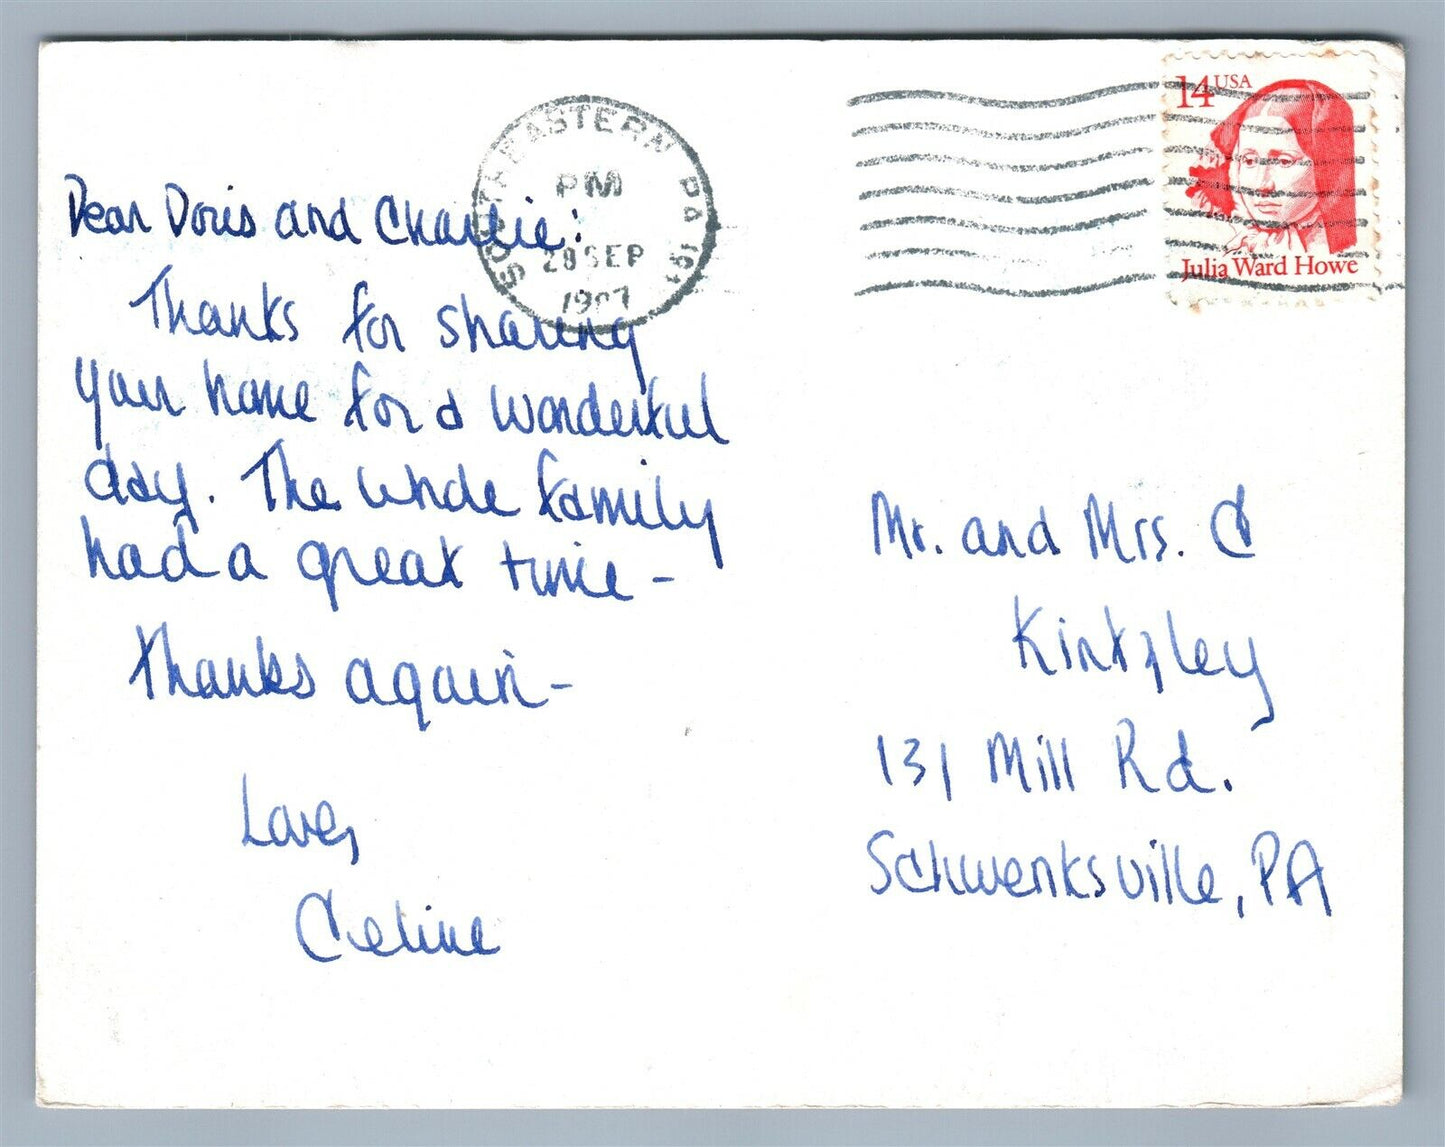 Dear Doris and Charlie:
Thanks for sharing
your home for a wonderful
day. The whole family
had a great time -
Thanks again -
Love,
Celine
SOUTHEASTERN PA
PM
SEP
14 USA
Julia Ward Howe
Mr. and Mrs. C
Kintzley
131 Mill Rd.
Schwenksville, PA